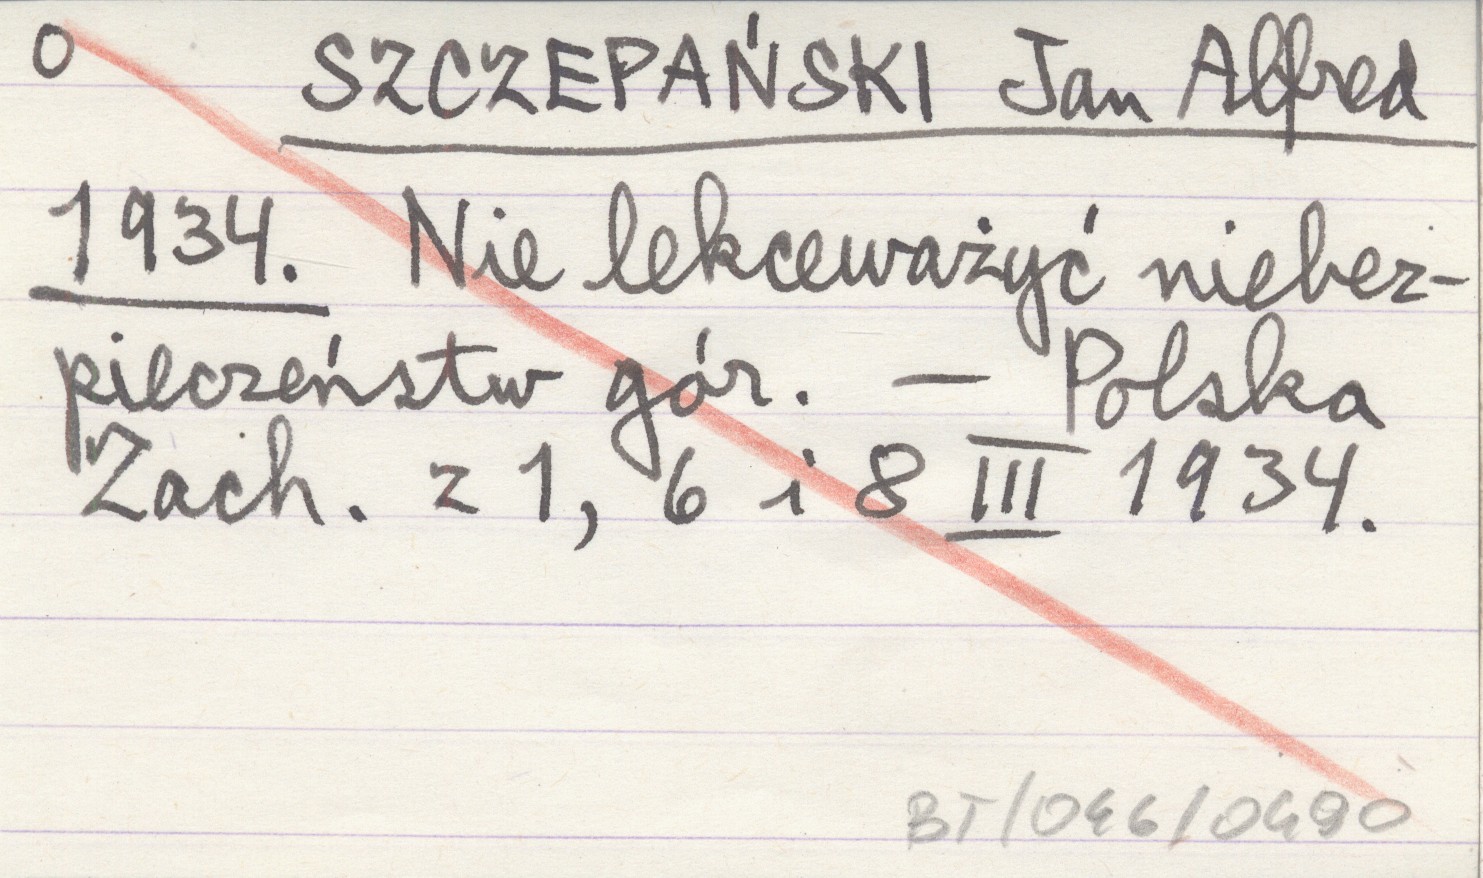 O SZCZEPAŃSKI Jan Alfred
1934. Nie lekceważyć niebez-
pieczeństw gór. — Polska
Zach. z 1, 6 i 8 III 1934.
BT/046/0490